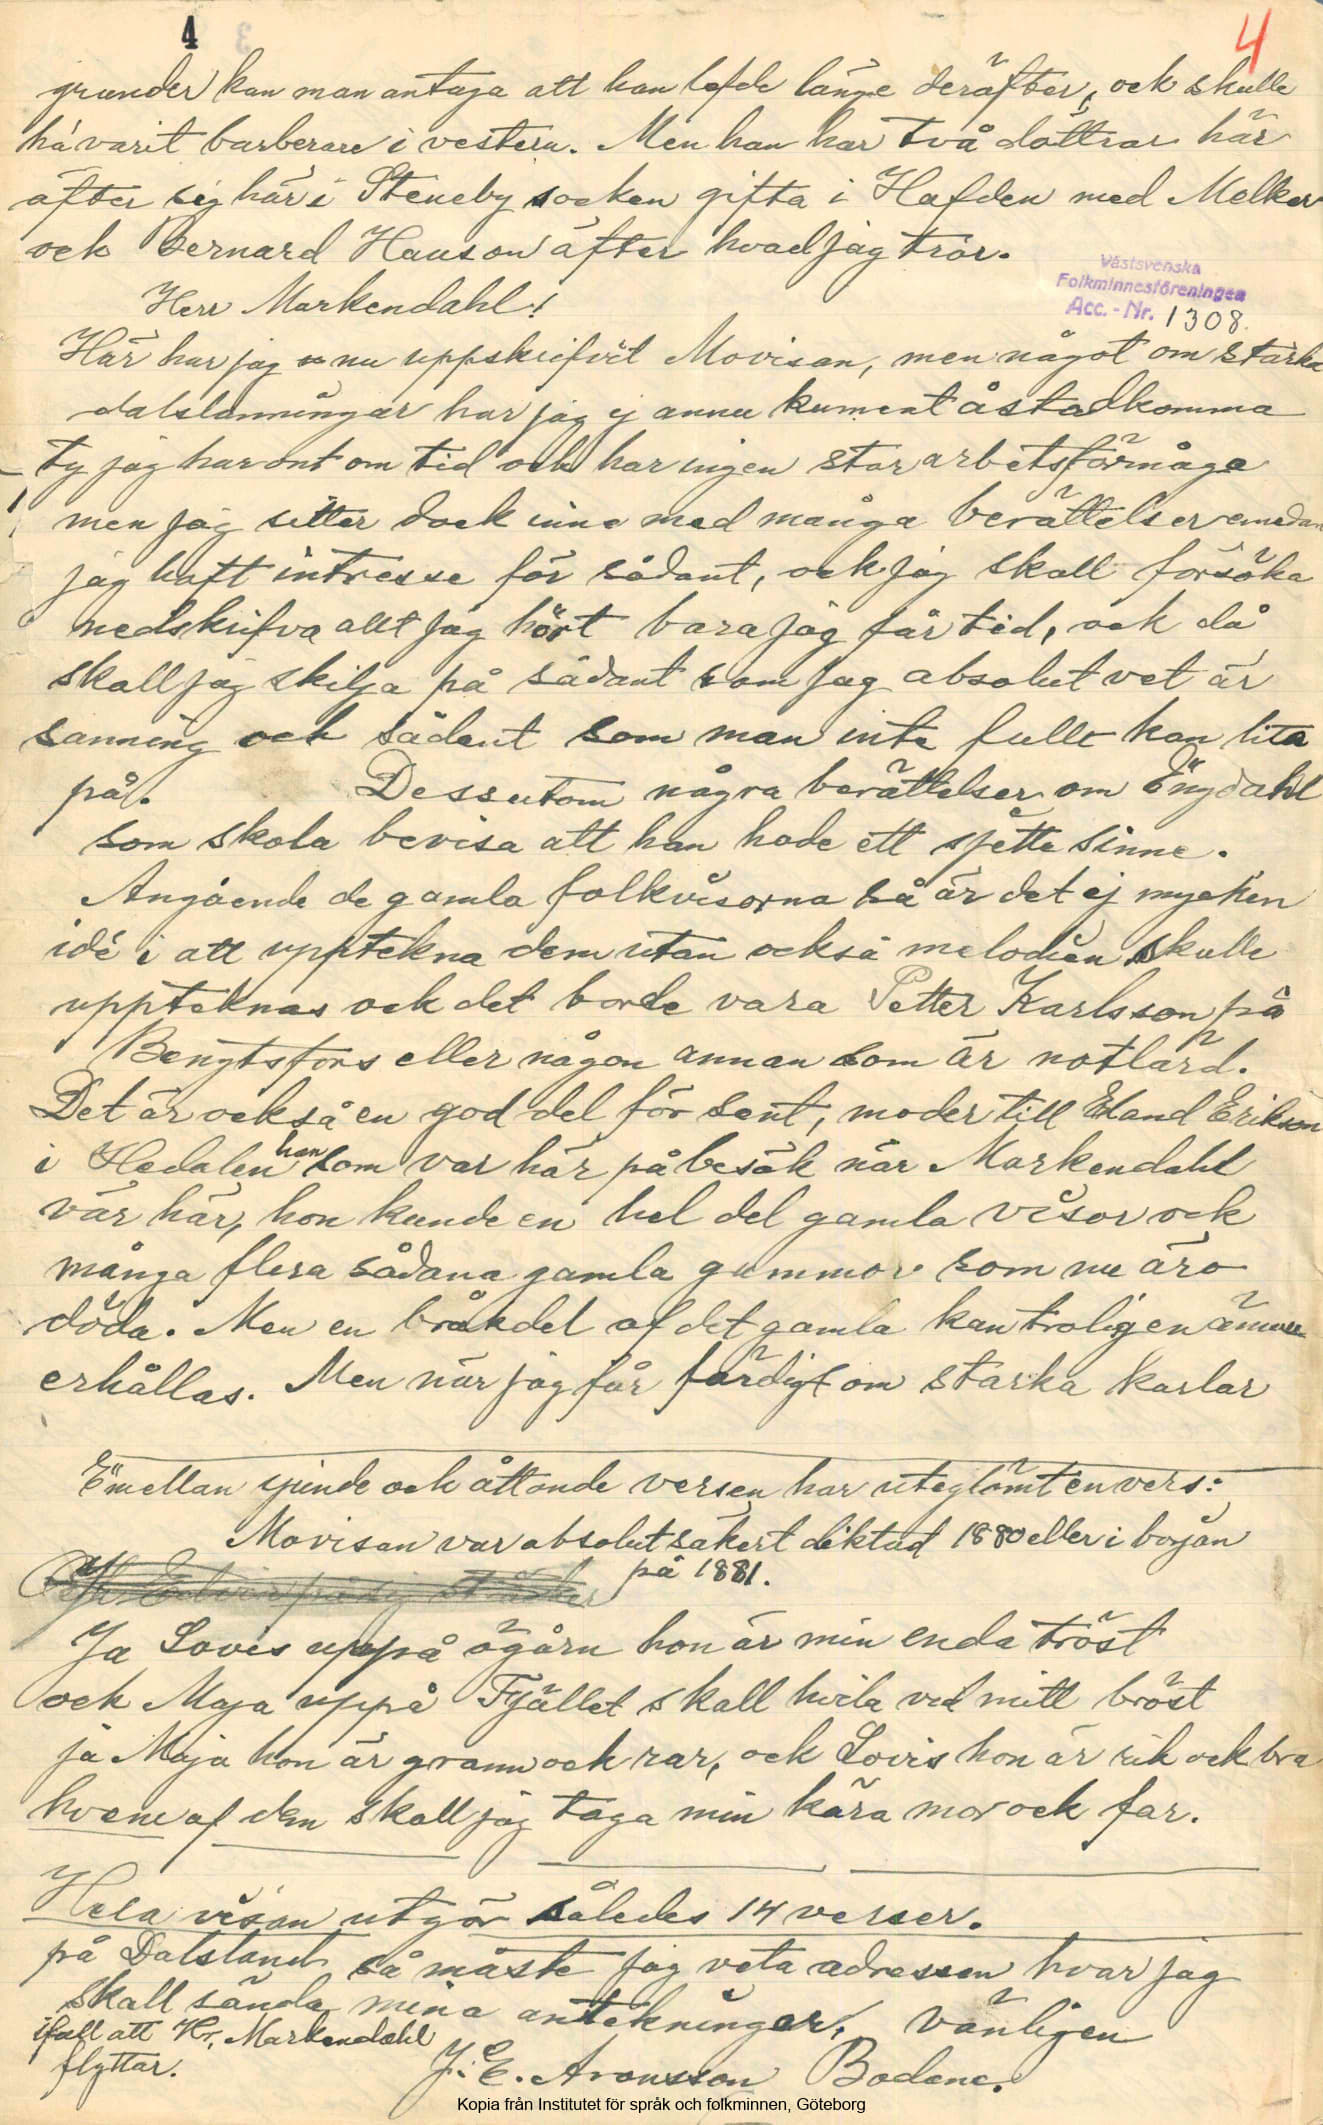 4
4
grunder kan man antaga att han lefde länge deräfter, ock skulle
ha varit barberare i vestern. Men han har två döttrar här
äfter sig här i Steneby socken gifta i Hafden med Melker
ock Bernard Hanson äfter hvad jag tror.
Västsvenska
Folkminnesföreningen
Acc.-Nr. 1308.
Herr Markendahl!
Här har jag nu uppskrifvit Movisan, men något om starka
dalslänningar har jag ej annu kunnat åstadkomma
ty jag har ont om tid och har ingen stor arbetsförmåga
men jag sitter dock inne med många berättelser emedan
jag haft intresse för sådant, ock jag skall försöka
nedskrifva allt jag hört bara jag får tid, ock då
skall jag skilja på sådant som jag absolut vet är
sanning och sådant som man inte fullt kan lita
på. Dessutom några berättelser om Engdahl
som skola bevisa att han hade ett sjette sinne.
Angående de gamla folkvisorna så är det ej mycken
idé i att upptekna dem utan också melodien skulle
uppteknas ock det borde vara Petter Karlsson på
Bengtsfors eller någon annan som är notlärd.
Det är också en god del för sent, moder till Eland Erikson
i Hedalen han som var här på besök när Markendahl
var här, hon kunde en hel del gamla visor ock
många flera sådana gamla gummor som nu äro
döda. Men en bråkdel af det gamla kan troligen ännu
erhållas. Men när jag får färdigt om starka karlar
Emellan sjunde och åttonde versen har uteglömt en vers:
Movisan var absolut säkert diktad 1880 eller i början
på 1881.
Ja Lovis uppå ögårn hon är min enda tröst
ock Maja uppå Fjället skall hvila vid mitt bröst
ja Maja hon är grann ock rar, ock Lovis hon är rik ock bra
hvem af dem skall jag taga min kära mor ock far.
Hela visan utgör således 14 verser.
på Dalsland så måste jag veta adressen hvar jag
skall sända mina antekningar, vänligen
ifall att Hr, Markendahl
flyttar.
J. E. Aronsson Bodane.
Kopia från Institutet för språk och folkminnen, Göteborg